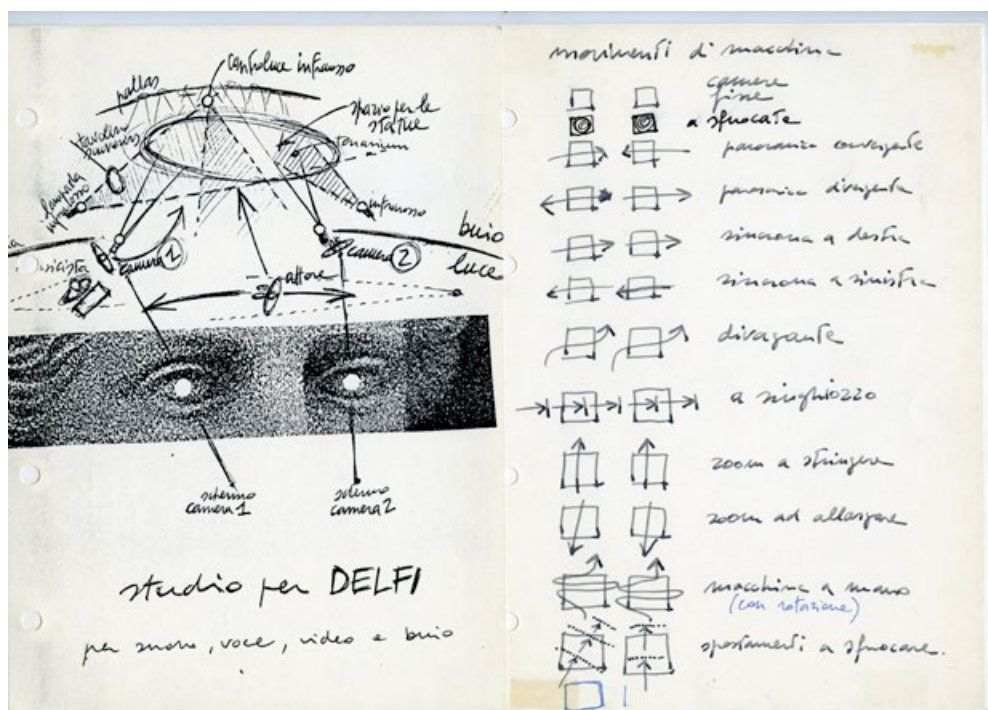 controluce infrarosso
pallas
spazio per le
statue
tavolino
lampada
infrarosso
infrarosso
buio
luce
camera 1
camera 2
attore
schermo
camera 1
schermo
camera 2
studio per DELFI
per suono, voce, video e buio
movimenti di macchina
camere
fisse
a sfuocate
panoramica convergente
panoramica divergente
sincrona a destra
sincrona a sinistra
divagante
a singhiozzo
zoom a stringere
zoom ad allargare
macchina a mano
(con rotazione)
spostamenti a sfuocare.